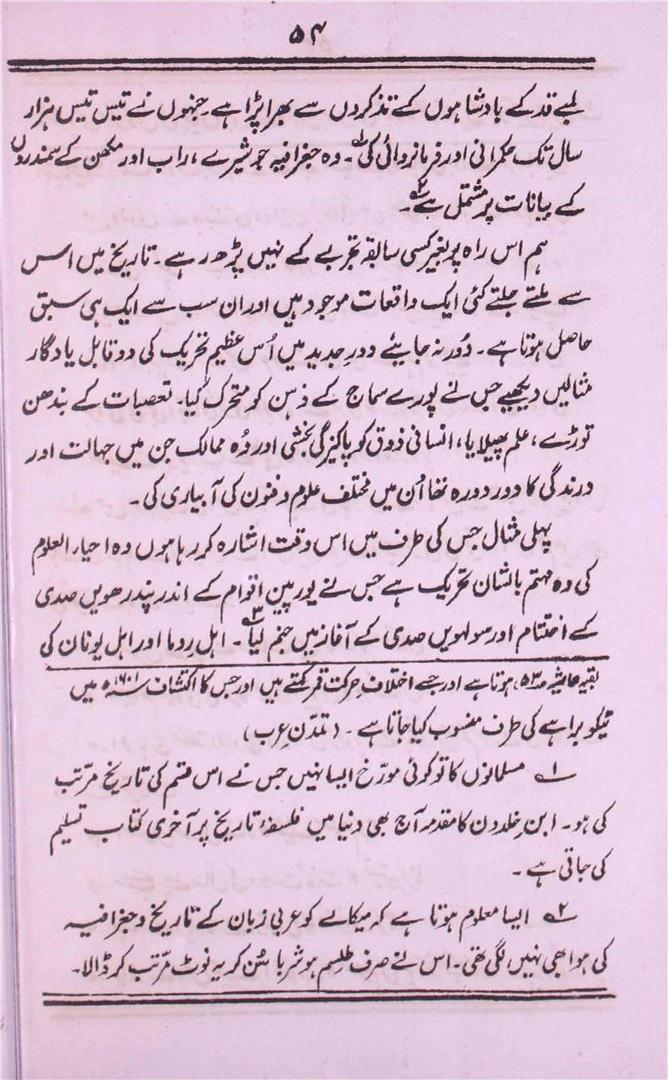 ۵۴
لمبے قد کے بادشاہوں کے تذکروں سے بھرا پڑا ہے۔ جنہوں نے تیس تیس ہزار
سال تک حکمرانی اور فرمانروائی کی۱؎۔ وہ جغرافیہ جو شیرے، راب اور مکھن کے سمندروں
کے بیانات پر مشتمل ہے۲؎۔
ہم اس راہ پر بغیر کسی سابقہ تجربے کے نہیں پڑھ رہے۔ تاریخ میں اس
سے ملتے جلتے کئی ایک واقعات موجود ہیں اور ان سب سے ایک ہی سبق
حاصل ہوتا ہے۔ دُور نہ جایئے دورِ جدید میں اُس عظیم تحریک کی دو قابل یادگار
مثالیں دیکھیے جس نے پورے سماج کے ذہن کو متحرک کیا۔ تعصبات کے بندھن
توڑے، علم پھیلایا، انسانی ذوق کو پاکیزگی بخشی اور وُہ ممالک جن میں جہالت اور
درندگی کا دور دورہ تھا اُن میں مختلف علوم و فنون کی آبیاری کی۔
پہلی مثال جس کی طرف میں اس وقت اشارہ کر رہا ہوں وہ احیاء العلوم
کی وہ مہتم بالشان تحریک ہے جس نے یورپین اقوام کے اندر پندرھویں صدی
کے اختتام اور سولہویں صدی کے آغاز میں جنم لیا۳؎۔ اہل روما اور اہل یونان کی
بقیہ حاشیہ ص۵۳، ہوتا ہے اور جسے اختلاف حرکت قمر کہتے ہیں اور جس کا اکتشاف ۱۶۰۱ء میں
ٹیکو براہے کی طرف منسوب کیا جاتا ہے۔ (تمدّن عرب)
۱؎ مسلمانوں کا تو کوئی مورّخ ایسا نہیں جس نے اس قسم کی تاریخ مرتّب
کی ہو۔ ابن خلدون کا مقدمہ آج بھی دنیا میں فلسفۂ تاریخ پر آخری کتاب تسلیم
کی جاتی ہے۔
۲؎ ایسا معلوم ہوتا ہے کہ میکالے کو عربی زبان کے تاریخ و جغرافیہ
کی ہوا بھی نہیں لگی تھی۔ اس نے صرف طلسم ہوشربا سُن کر یہ نوٹ مرتب کر ڈالا۔